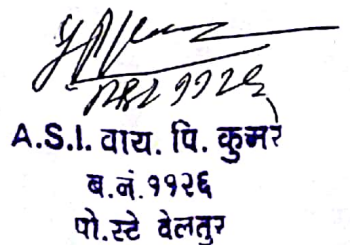 A.S.I. वाय. पि. कुमरे
ब.नं. ११२६
पो.स्टे वेलतुर